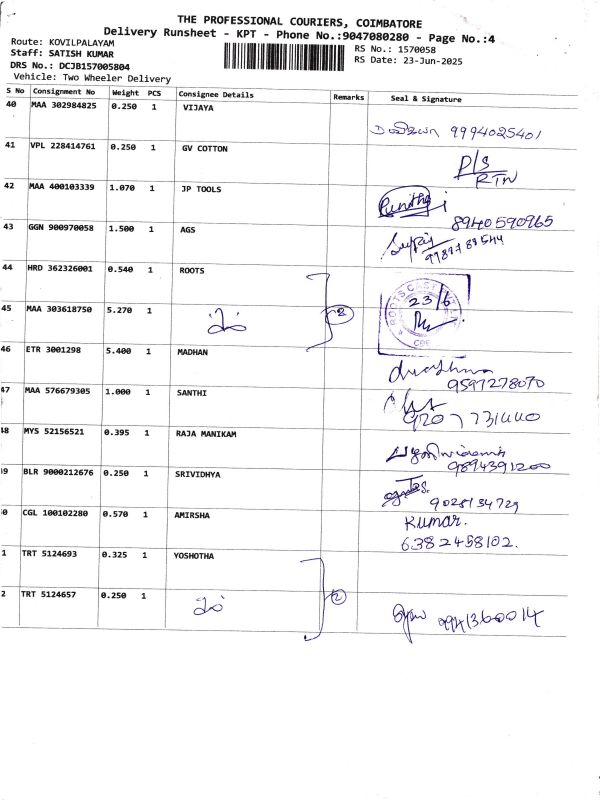 THE PROFESSIONAL COURIERS, COIMBATORE
Delivery Runsheet - KPT - Phone No.:9047080280 - Page No.:4
Route: KOVILPALAYAM
RS No.: 1570058
Staff: SATISH KUMAR
RS Date: 23-Jun-2025
DRS No.: DCJB157005804
Vehicle: Two Wheeler Delivery
S No Consignment No Weight PCS Consignee Details Remarks Seal & Signature
40 MAA 302984825 0.250 1 VIJAYA
9994025401
41 VPL 228414761 0.250 1 GV COTTON
P/S
RTN
42 MAA 400103339 1.070 1 JP TOOLS
8940590965
43 GGN 900970058 1.500 1 AGS
44 HRD 362326001 0.540 1 ROOTS
23/6
45 MAA 303618750 5.270 1
46 ETR 3001298 5.400 1 MADHAN
9597278070
47 MAA 576679305 1.000 1 SANTHI
48 MYS 52156521 0.395 1 RAJA MANIKAM
9894391200
49 BLR 9000212676 0.250 1 SRIVIDHYA
9028134729
0 CGL 100102280 0.570 1 AMIRSHA
Kumar.
6382458102.
1 TRT 5124693 0.325 1 YOSHOTHA
2 TRT 5124657 0.250 1
9941360014